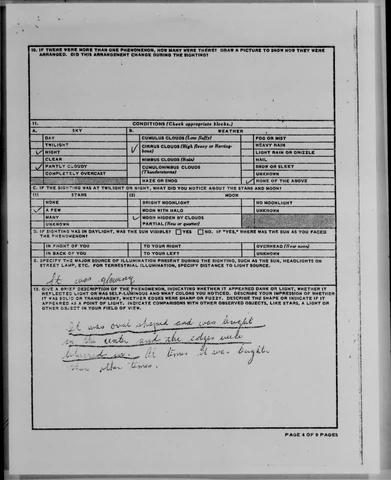 10. IF THERE WERE MORE THAN ONE PHENOMENON, HOW MANY WERE THERE? DRAW A PICTURE TO SHOW HOW THEY WERE
ARRANGED. DID THIS ARRANGEMENT CHANGE DURING THE SIGHTING?
11. CONDITIONS (Check appropriate blocks.)
A. SKY B. WEATHER
DAY CUMULUS CLOUDS (Low fluffy) FOG OR MIST
TWILIGHT CIRRUS CLOUDS (High fleecy or Herring- HEAVY RAIN
✓ NIGHT ✓ bone) LIGHT RAIN OR DRIZZLE
CLEAR NIMBUS CLOUDS (Rain) HAIL
✓ PARTLY CLOUDY CUMULONIMBUS CLOUDS SNOW OR SLEET
COMPLETELY OVERCAST (Thunderstorms) UNKNOWN
HAZE OR SMOG ✓ NONE OF THE ABOVE
C. IF THE SIGHTING WAS AT TWILIGHT OR NIGHT, WHAT DID YOU NOTICE ABOUT THE STARS AND MOON?
(1) STARS (2) MOON
NONE BRIGHT MOONLIGHT NO MOONLIGHT
✓ A FEW MOON WITH HALO UNKNOWN
MANY ✓ MOON HIDDEN BY CLOUDS
UNKNOWN PARTIAL (New or quarter)
D. IF SIGHTING WAS IN DAYLIGHT, WAS THE SUN VISIBLE? YES NO. IF "YES," WHERE WAS THE SUN AS YOU FACED
THE PHENOMENON?
IN FRONT OF YOU TO YOUR RIGHT OVERHEAD (Near noon)
IN BACK OF YOU TO YOUR LEFT UNKNOWN
E. SPECIFY THE MAJOR SOURCE OF ILLUMINATION PRESENT DURING THE SIGHTING, SUCH AS THE SUN, HEADLIGHTS OR
STREET LAMP, ETC. FOR TERRESTRIAL ILLUMINATION, SPECIFY DISTANCE TO LIGHT SOURCE.
It was glowing
12. GIVE A BRIEF DESCRIPTION OF THE PHENOMENON, INDICATING WHETHER IT APPEARED DARK OR LIGHT, WHETHER IT
REFLECTED LIGHT OR WAS SELF-LUMINOUS AND WHAT COLORS YOU NOTICED. DESCRIBE YOUR IMPRESSION OF WHETHER
IT WAS SOLID OR TRANSPARENT, WHETHER EDGES WERE SHARP OR FUZZY. DESCRIBE THE SHAPE OR INDICATE IF IT
APPEARED AS A POINT OF LIGHT. INDICATE COMPARISONS WITH OTHER OBSERVED OBJECTS, LIKE STARS, A LIGHT OR
OTHER OBJECT IN YOUR FIELD OF VIEW.
It was oval shaped and was bright
in the center and the edges were
blurred. At times it was brighter
than other times.
PAGE 4 OF 9 PAGES